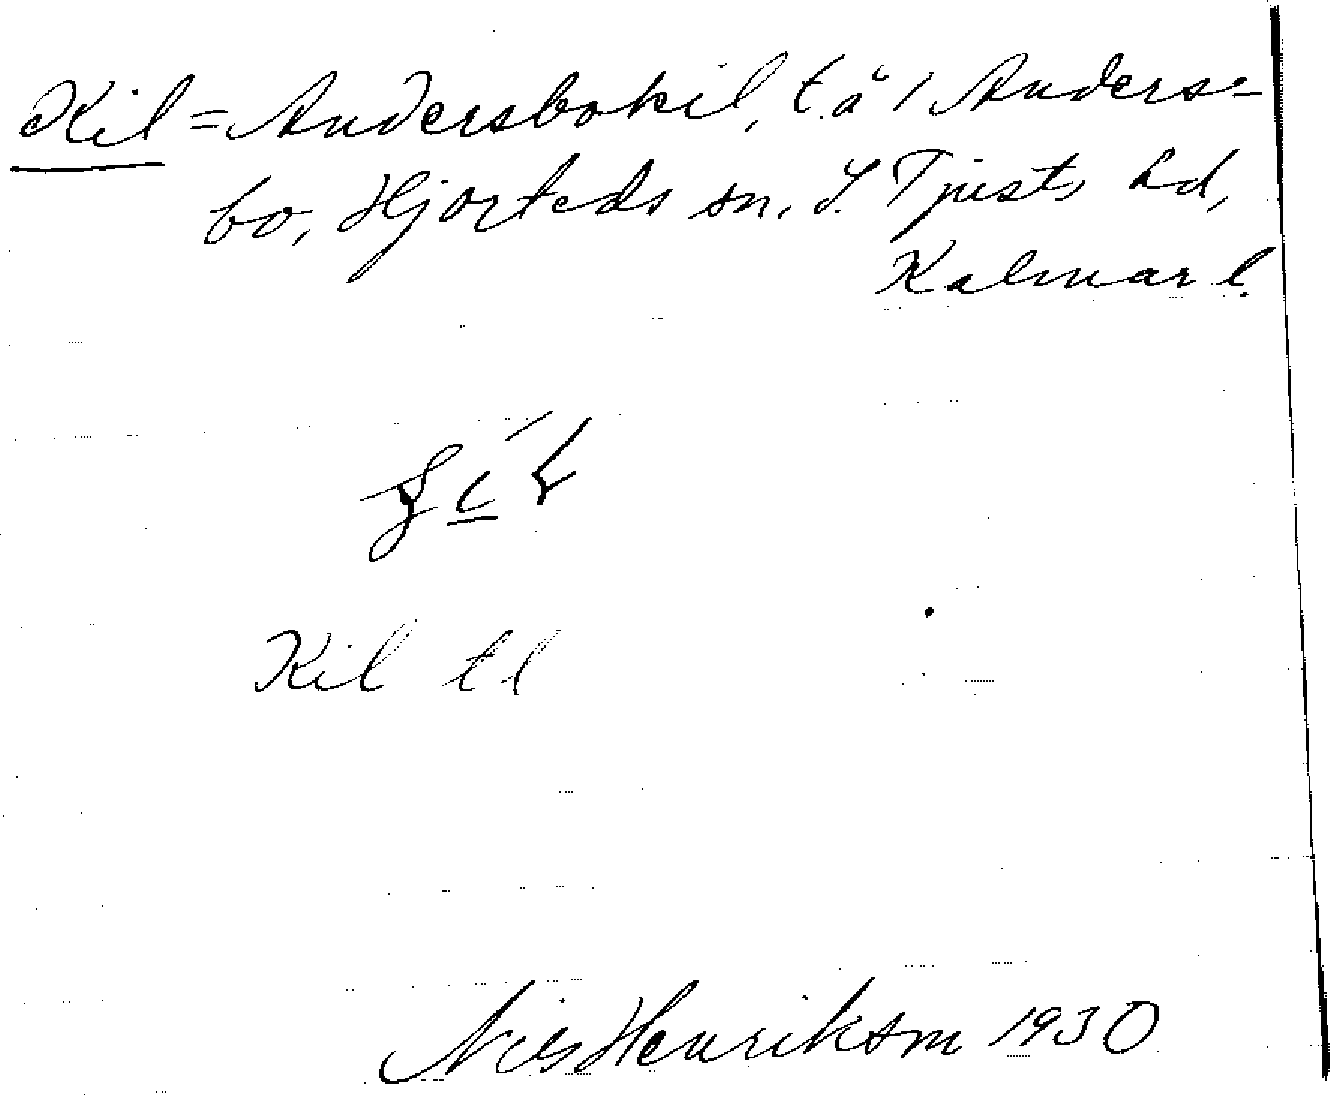 Kil = Andersbokil, t.å 1 Anders=
bo, Hjorteds sn, S. Tjusts hd,
Kalmar l.
Kil tl
Nils Henrikson 1930